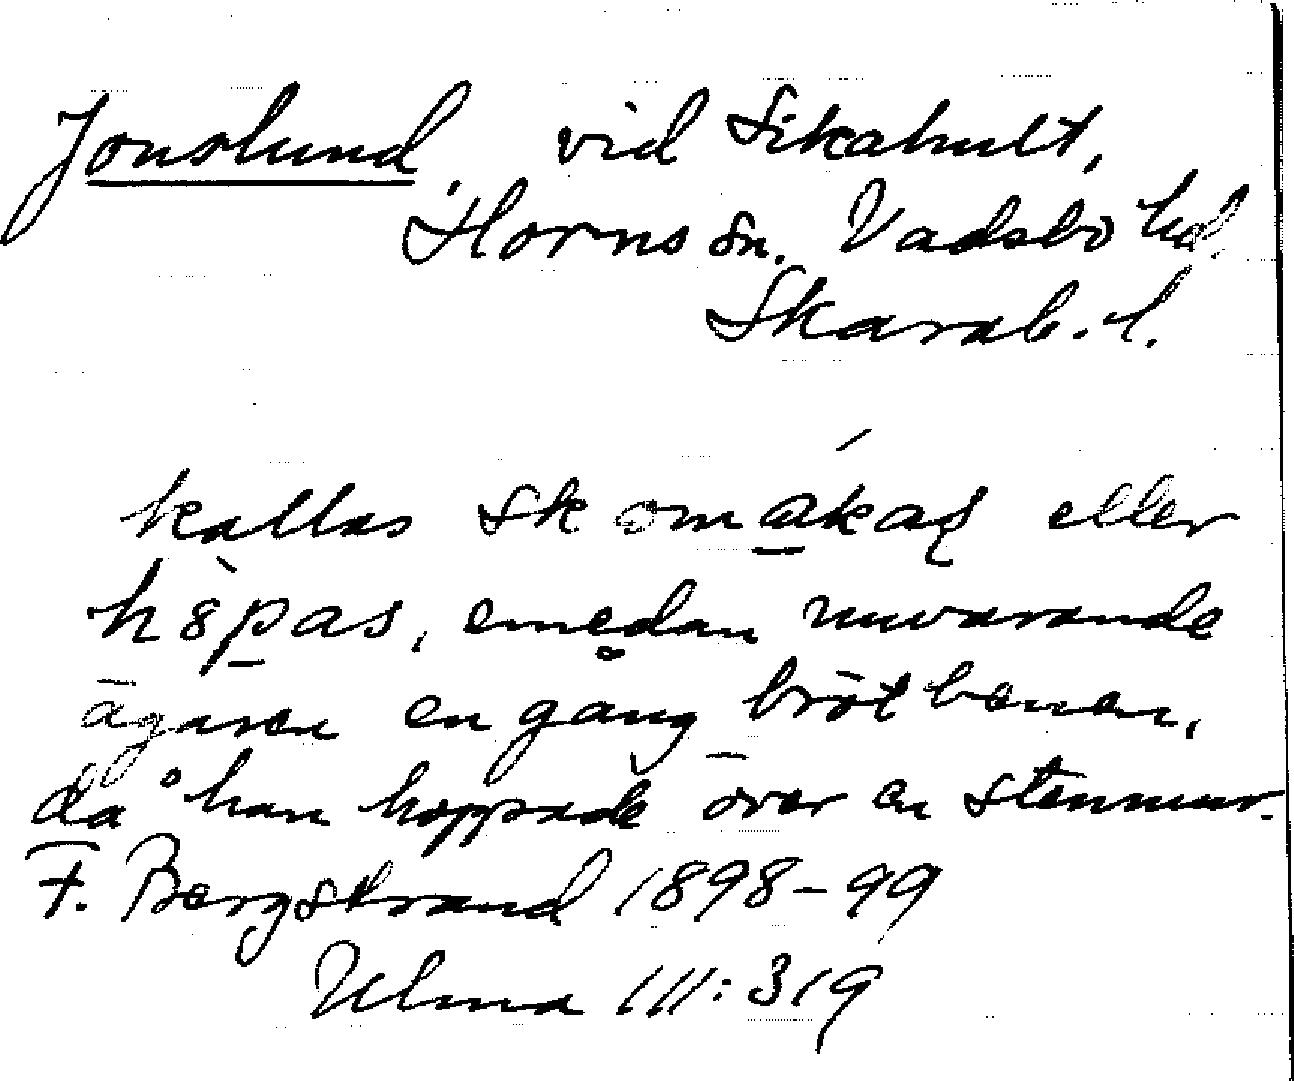 Jonslund vid Sikahult,
Horns sn. Vadsbo hd.
Skarab. l.
kallas skomakaς eller
h8pas, emedan nuvarande
ägaren en gång bröt benen,
då han hoppade över en stenmur.
F. Bergstrand 1898-99
Ulma 111:319